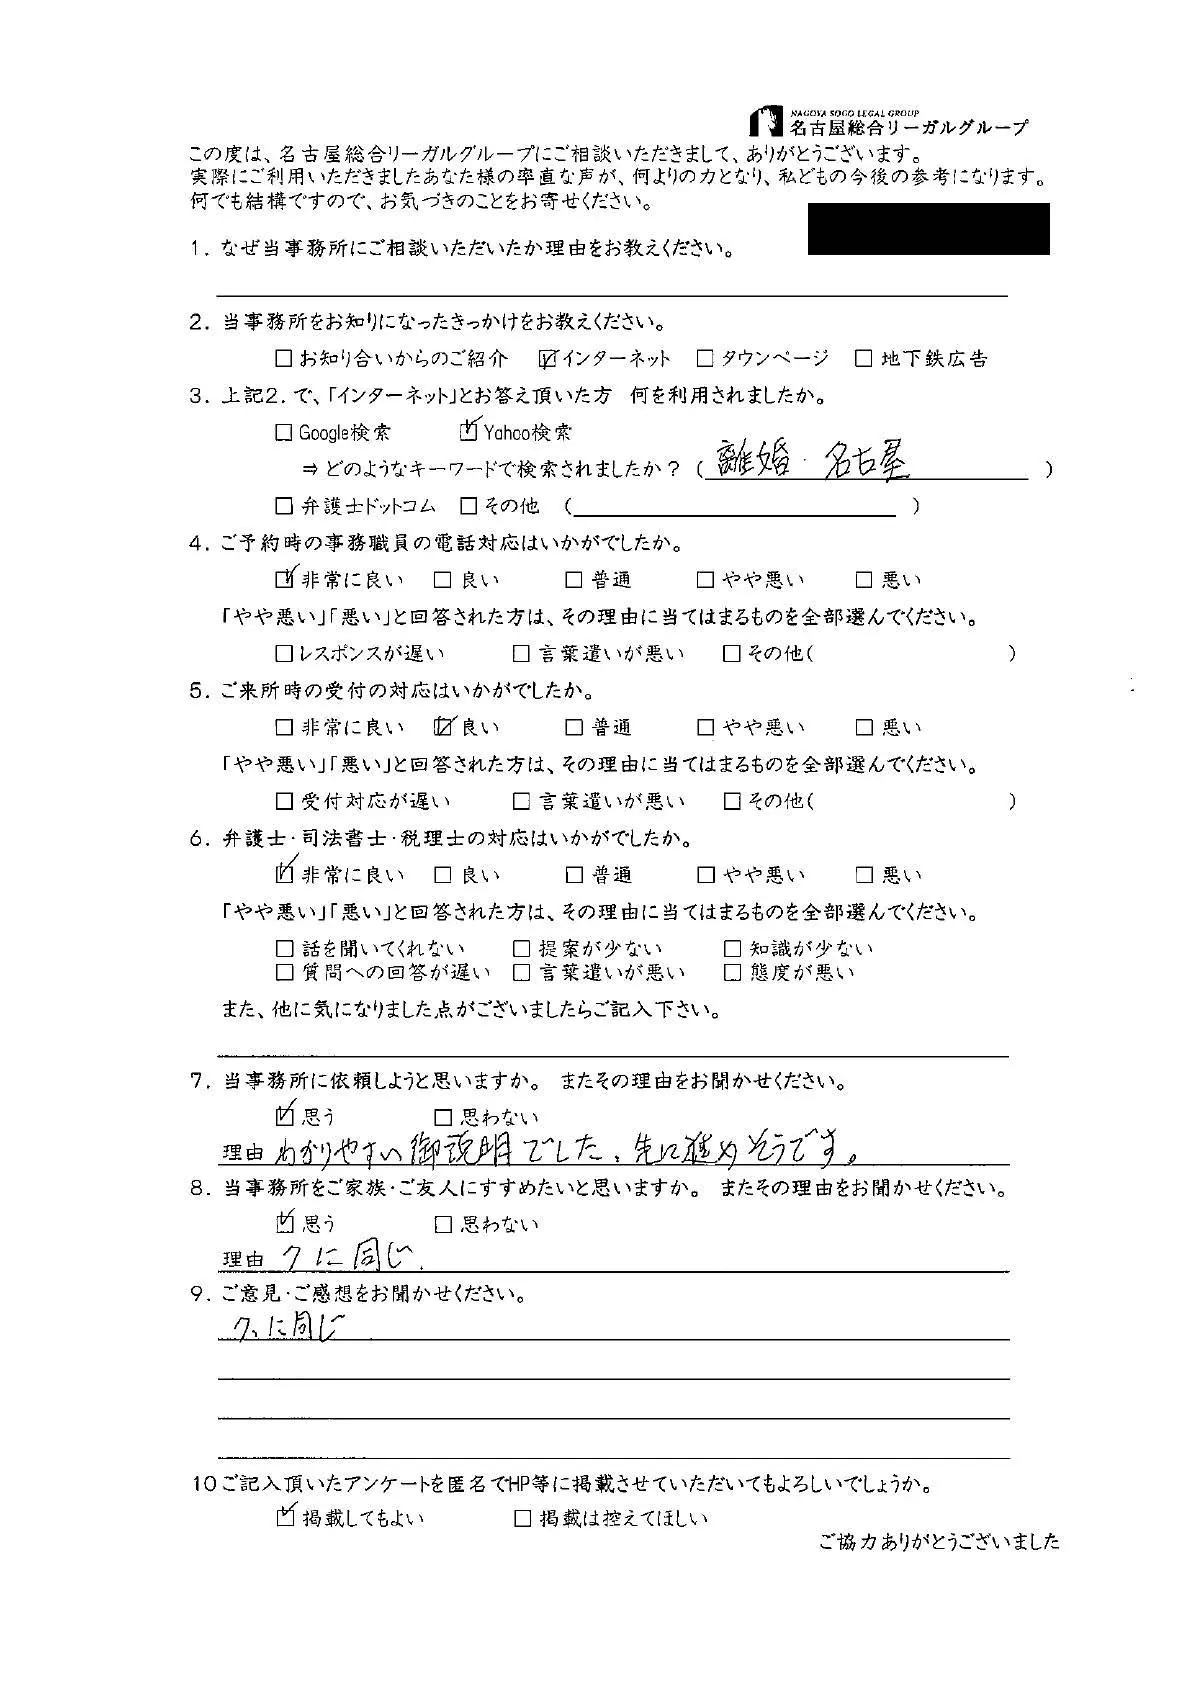 NAGOYA SOGO LEGAL GROUP
名古屋総合リーガルグループ
この度は、名古屋総合リーガルグループにご相談いただきまして、ありがとうございます。
実際にご利用いただきましたあなた様の率直な声が、何よりの力となり、私どもの今後の参考になります。
何でも結構ですので、お気づきのことをお寄せください。
1. なぜ当事務所にご相談いただいたか理由をお教えください。
2. 当事務所をお知りになったきっかけをお教えください。
□お知り合いからのご紹介 ☑インターネット □タウンページ □地下鉄広告
3. 上記2.で、「インターネット」とお答え頂いた方 何を利用されましたか。
□Google検索 ☑Yahoo検索
⇒どのようなキーワードで検索されましたか？（離婚・名古屋）
□弁護士ドットコム □その他 （ ）
4. ご予約時の事務職員の電話対応はいかがでしたか。
☑非常に良い □良い □普通 □やや悪い □悪い
「やや悪い」「悪い」と回答された方は、その理由に当てはまるものを全部選んでください。
□レスポンスが遅い □言葉遣いが悪い □その他( )
5. ご来所時の受付の対応はいかがでしたか。
□非常に良い ☑良い □普通 □やや悪い □悪い
「やや悪い」「悪い」と回答された方は、その理由に当てはまるものを全部選んでください。
□受付対応が遅い □言葉遣いが悪い □その他( )
6. 弁護士・司法書士・税理士の対応はいかがでしたか。
☑非常に良い □良い □普通 □やや悪い □悪い
「やや悪い」「悪い」と回答された方は、その理由に当てはまるものを全部選んでください。
□話を聞いてくれない □提案が少ない □知識が少ない
□質問への回答が遅い □言葉遣いが悪い □態度が悪い
また、他に気になりました点がございましたらご記入下さい。
7. 当事務所に依頼しようと思いますか。 またその理由をお聞かせください。
☑思う □思わない
理由 わかりやすい御説明でした、先に進めそうです。
8. 当事務所をご家族・ご友人にすすめたいと思いますか。 またその理由をお聞かせください。
☑思う □思わない
理由 7に同じ.
9. ご意見・ご感想をお聞かせください。
7、に同じ
10ご記入頂いたアンケートを匿名でHP等に掲載させていただいてもよろしいでしょうか。
☑掲載してもよい □掲載は控えてほしい
ご協力ありがとうございました